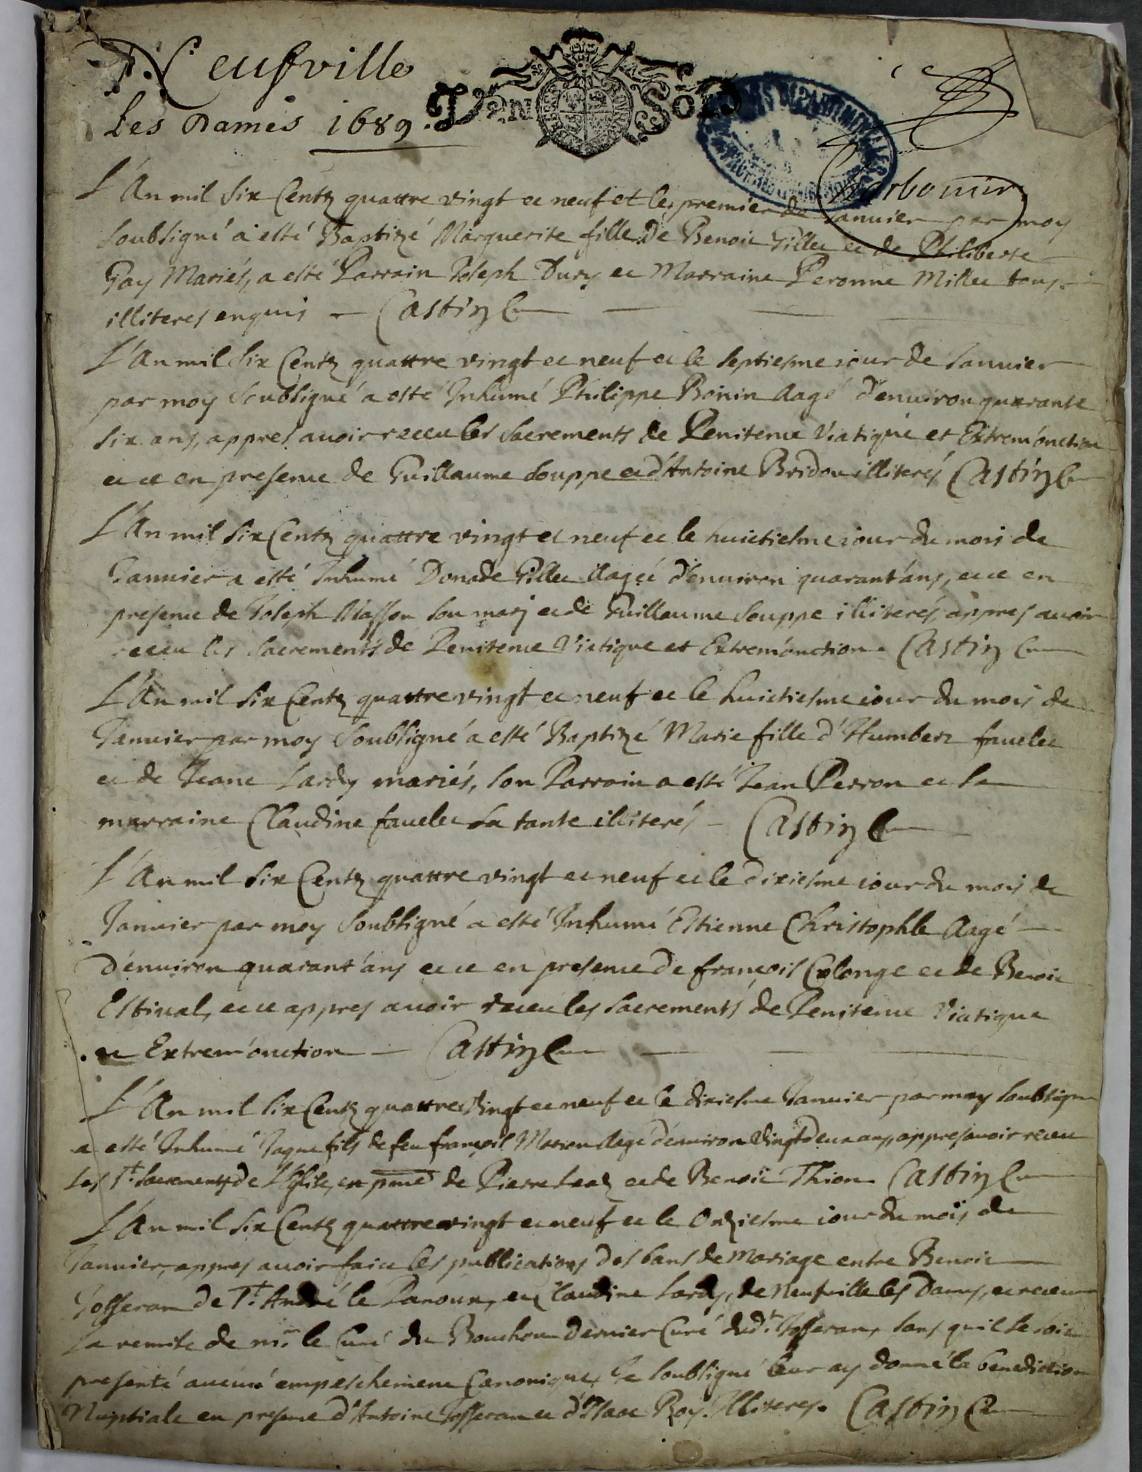 Neufville
les Dames 1689.
Vn Sol
Charbonnier
L'An mil six Centz quattre vingt et neuf et le premier de Ianuier par moy
soubsigné a esté Baptizé Marguerite fille de Benoit Gillet et de Philiberte
Gay Mariés, a esté Parrain Ioseph Dury et Marraine Peronne Millet tous
illiteres enquis — Castin C
L'An mil six Centz quattre vingt et neuf et le septiesme iour de Ianuier
par moy soubsigné a esté Inhumé Philippe Bonin Aagé d'enuiron quarante
six ans, appres auoir receu les sacrements de Penitence Viatique et Extrem'onction
et ce en presence de Guillaume Souppe et d'Antoine Bridon illiterés Castin C
L'An mil six Centz quattre vingt et neuf et le huictiesme iour du mois de
Ianuier a esté Inhumé Donade Gillet Aagée d'enuiron quarant'ans, et ce en
presence de Ioseph Masson son mary et de Guillaume Souppe illiterés appres auoir
receu les sacrements de Penitence Viatique et Extrem'onction. Castin C
L'An mil six Centz quattre vingt et neuf et le huictiesme iour du mois de
Ianuier par moy soubsigné a esté Baptizé Marie fille d'Humbert fauelet
et de Ieane Lardy mariés, son Parrain a esté Iean Perron et la
marraine Claudine fauelet sa tante illiterés — Castin C
L'An mil six Centz quattre vingt et neuf et le dixiesme iour du mois de
Ianuier par moy soubsigné a esté Inhumé Estienne Christophle Aagé
d'enuiron quarant'ans et ce en presence de françois Colonge et de Benoit
Estiual, et ce appres auoir receu les sacrements de Penitence Viatique
et Extrem'onction — Castin C
L'An mil six Centz quattre vingt et neuf et le dixiesme Ianuier par moy soubsigné
a esté Inhumé Iaque fils de feu françois Morion Aagé d'enuiron vingt deux ans, appres auoir receu
les Sts sacrements de l'Eglise, en pnce de Pierre et de Benoit Thion. Castin C
L'An mil six Centz quattre vingt et neuf et le Onziesme iour du mois de
Ianuier, appres auoir faict les publications des bans de Mariage entre Benoit
Iosseran de St André le Panoux, et Claudine Lardy, de Neufville les Dames, et receu
la remise de mr le Curé du Bouchou dernier Curé dudt Iosseran, sans qu'il se soit
presenté aucun empeschement Canonique, Ie soubsigné leur ay donné la benediction
Nuptiale en presence d'Antoine Iosseran et d'Isaac Roy Illiteres. Castin C